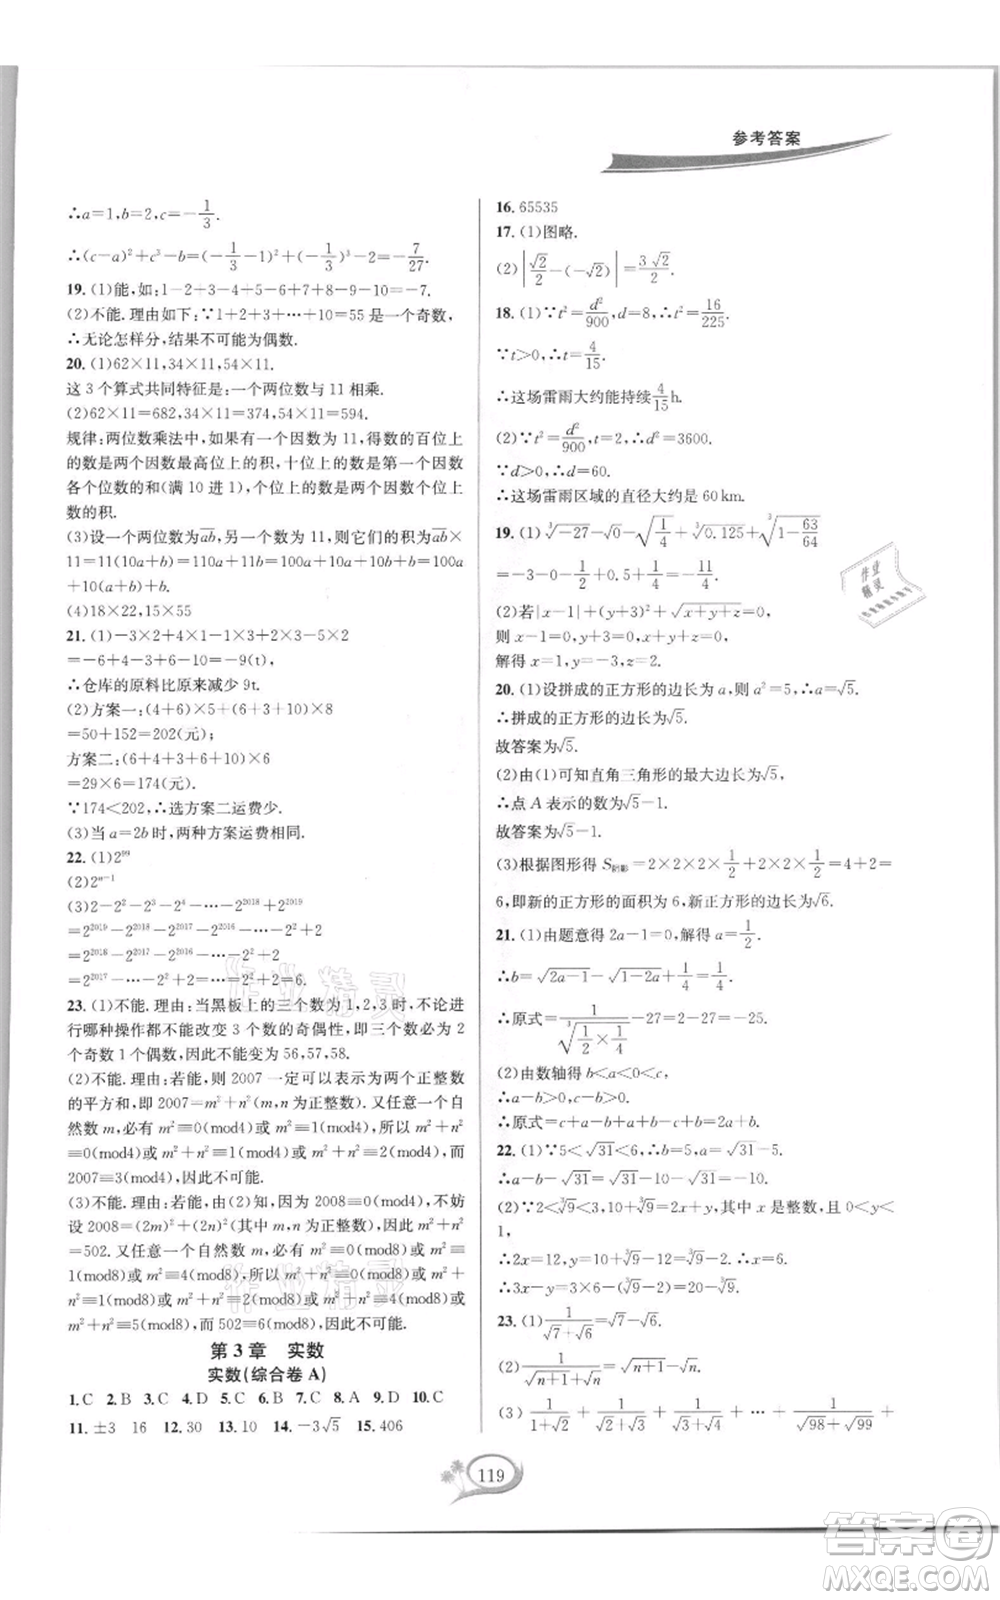 参考答案
∴a=1,b=2,c=-1/3.
∴(c-a)²+c³-b=(-1/3-1)²+(-1/3)³-2=-7/27.
19. (1)能,如:1-2+3-4+5-6+7-8+9-10=-7.
(2)不能.理由如下:∵1+2+3+…+10=55 是一个奇数,
∴无论怎样分,结果不可能为偶数.
20. (1)62×11,34×11,54×11.
这 3 个算式共同特征是:一个两位数与 11 相乘.
(2)62×11=682,34×11=374,54×11=594.
规律:两位数乘法中,如果有一个因数为 11,得数的百位上
的数是两个因数最高位上的积,十位上的数是两个因数
各个位数的和(满 10 进 1),个位上的数是两个因数个位
数的积.
(3)设一个两位数为ab,另一个因数为 11,则它们的积为ab×
11=11(10a+b)=110a+11b=100a+10a+10b+b=100a
+10(a+b)+b.
(4)18×22,15×55
21. (1)-3×2+4×1-1×3+2×3-5×2
=-6+4-3+6-10=-9(t),
∴仓库的原料比原来减少 9t.
(2)方案一:(4+6)×5+(3+6+10)×8
=50+152=202(元);
方案二:(6+4+3+6+10)×6
=29×6=174(元),
∵174<202,∴选方案二运费少.
(3)当 a=2b时,两种方案运费相同.
22. (1)2⁹⁹
(2)2ⁿ⁻¹
(3)2-2²-2³-2⁴-…-2²⁰¹⁸+2²⁰¹⁹
=2²⁰¹⁹-2²⁰¹⁸-2²⁰¹⁷-2²⁰¹⁶-…-2²+2
=2²⁰¹⁸-2²⁰¹⁷-2²⁰¹⁶-…-2²+2
=2²⁰¹⁷-…-2⁴-2³-2²+2=6.
23. (1)不能.理由:当黑板上的三个数为 1,2,3 时,不论进
行哪种操作都不能改变 3 个数的奇偶性,即三个数必为 2
个奇数 1 个偶数,因此不可能变为 56,57,58.
(2)不能.理由:若能,则 2007 一定可以表示为两个正整数
的平方和,即 2007=m²+n²(m,n 为正整数).又任意一个自
然数 m,必有 m²≡0(mod4)或 m²≡1(mod4),所以 m²+n²≡
0(mod4)或 m²+n²≡1(mod4)或 m²+n²≡2(mod4),而
2007≡3(mod4),因此不可能.
(3)不能.理由:若能,由(2)知,因为 2008≡0(mod4),不妨
设 2008=(2m)²+(2n)²(其中 m,n 为正整数),则 m²+n²
=502.又任意一个自然数 m,必有 m²≡0(mod8)或 m²≡1
(mod8)或 m²≡4(mod8),所以 m²+n²≡0(mod8)或 m²+n²
≡1(mod8)或 m²+n²≡2(mod8)或 m²+n²≡4(mod8)或
m²+n²≡5(mod8),而 502≡6(mod8),因此不可能.
第 3 章 实数
实数(综合卷 A)
1. C 2. B 3. C 4. D 5. C 6. B 7. C 8. A 9. D 10. C
11. ±3 16 12. 30 13. 10 14. -3√5 15. 406
16. 65535
17. (1)图略.
(2)|√2/2-(-√2)|=3√2/2.
18. (1)∵t²=d³/900,d=8,∴t²=16/225.
∵t>0,∴t=4/15.
∴这场雷雨大约能持续4/15h.
(2)∵t²=d²/900,∴d²=3600.
∵d>0,∴d=60.
∴这场雷雨区域的直径大约是 60 km.
19. (1)∛-27-√0-√(1/4)+∛0.125+∛(1-63/64)
=-3-0-1/2+0.5+1/4=-11/4.
(2)若|x-1|+(y+3)²+√(x+y+z)=0,
则 x-1=0,y+3=0,x+y+z=0.
解得 x=1,y=-3,z=2.
20. (1)设拼成的正方形的边长为 a,则 a²=5,∴a=√5.
∴拼成的正方形的边长为√5.
故答案为√5.
(2)由(1)可知直角三角形的最大边长为√5,
∴点 A 表示的数为√5-1.
故答案为√5-1.
(3)根据图形得 S阴影=2×2×2×1/2+2×2×1/2=4+2=
6,即新的正方形的面积为 6,新正方形的边长为√6.
21. (1)由题意得 2a-1=0,解得 a=1/2.
∴b=√(2a-1)-√(1-2a)+1/4=1/4,
∴原式=1/∛(1/2×1/4)-√…=2-2√7
(2)由数轴得 b<a<0<c,
∴a-b>0,c-b>0.
∴原式=c+a-b+b-c+b+a=2a+b.
22. (1)∵5<√31<6,∴b=5,a=√31-5.
∴a-b=√31-5-5=√31-10.
(2)∵2<∛9<3,10+∛9=2x+y,其中 x 是整数,且 0<y<
1,
∴2x=12,y=10+∛9-12=∛9-2,∴x=6.
∴3x-y=3×6-(∛9-2)=20-∛9.
23. (1)1/(√7+√6)=√7-√6
(2)1/(√(n+1)+√n)=√(n+1)-√n
(3)1/(1+√2)+1/(√2+√3)+1/(√3+√4)+…+1/(√98+√99)+
119
作业精灵
作业精灵
作业精灵
答案卷
MXQE.COM